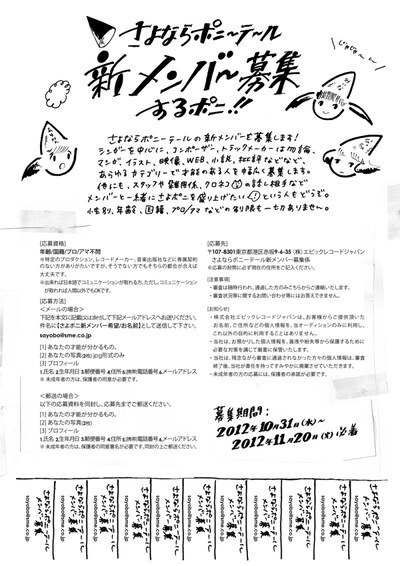 さよならポニーテール
新メンバー募集
するポニ!!
じゃじゃ〜ん
さよならポニーテールの新メンバーを募集します!
シンガーを中心に、コンポーザー、トラックメーカーは勿論、
マンガ、イラスト、映像、WEB、小説、批評などなど、
あらゆるカテゴリーで才能のある人を幅広く募集します。
他にも、スタッフや 、クロネコ の話し相手など
メンバーと一緒にさよポニを盛り上げたい!という人もどうぞ。
小性別、年齢、国籍、プロ/アマなどの制限も一切ありません。
[応募資格]
年齢/国籍/プロ/アマ不問
※特定のプロダクション、レコードメーカー、音楽出版社などに専属契約
のない方がありがたいですが、そうでない方でもそちらの都合が合えば
大丈夫です。
※出来れば日本語でコミュニケーションが取れる方。ただし、コミュニケーション
が取れれば人間以外でもOKです。
[応募方法]
<メールの場合>
下記を本文に記載(又は)付して下記メールアドレスへお送りください。
件名に【さよポニ新メンバー希望/お名前】として送信して下さい。
sayobo@sme.co.jp
[1] あなたの才能が分かるもの。
[2] あなたの写真(2枚) jpg形式のみ
[3] プロフィール
1.氏名 2.生年月日 3.郵便番号 4.住所 5.(携帯)電話番号 6.メールアドレス
※ 未成年者の方は、保護者の同意が必要です。
<郵送の場合>
以下の応募資料を同封し、応募先までご郵送ください。
[1] あなたの才能が分かるもの。
[2] あなたの写真(2枚)
[3] プロフィール
1.氏名 2.生年月日 3.郵便番号 4.住所 5.(携帯)電話番号 6.メールアドレス
※ 未成年者の方は、保護者の同意署名がご必要です。同封の上ご郵送ください。
[応募先]
〒107-8301東京都港区赤坂9-6-35 (株)エピックレコードジャパン
さよならポニーテール新メンバー募集係
※応募の封筒に必ず現在の住所をご記入ください。
[注意事項]
・審査は随時行われ、通過した方のみこちらからご連絡いたします。
・審査状況等に関するお問い合わせ等にはお答えできません。
[お知らせ]
・株式会社エピックレコードジャパンは、お客様からご提供頂いた
お名前、ご住所などの個人情報を、当オーディションのみに利用し、
これ以外の目的に利用することはありません。
・当社は、お預かりした個人情報を、漏洩や紛失等から保護するために
必要な対策を講じて厳重に保管いたします。
・当社は、残念ながら審査に通過されなかった方々の個人情報は、審査
終了後、当社が責任を持ってすみやかに廃棄させていただきます。
・未成年者の方の応募には、保護者の承諾が必要です。
募集期間:
2012年10月31日(水)〜
2012年11月20日(火)必着
さよならポニーテール
メンバー募集
sayobo@sme.co.jp
さよならポニーテール
メンバー募集
sayobo@sme.co.jp
さよならポニーテール
メンバー募集
sayobo@sme.co.jp
さよならポニーテール
メンバー募集
sayobo@sme.co.jp
さよならポニーテール
メンバー募集
sayobo@sme.co.jp
さよならポニーテール
メンバー募集
sayobo@sme.co.jp
さよならポニーテール
メンバー募集
sayobo@sme.co.jp
さよならポニーテール
メンバー募集
sayobo@sme.co.jp
さよならポニーテール
メンバー募集
sayobo@sme.co.jp